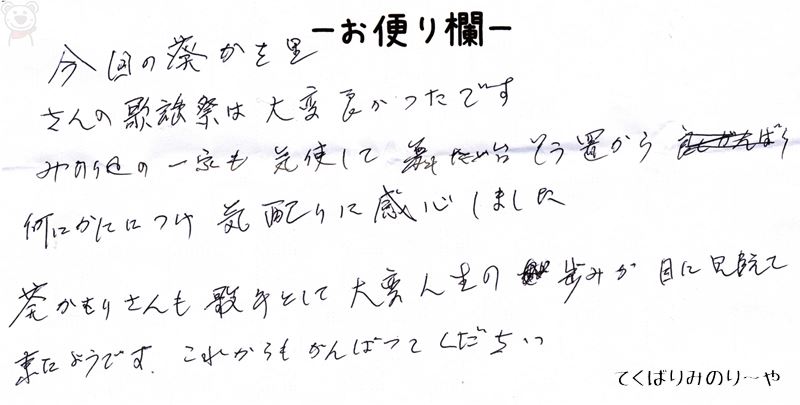 ーお便り欄ー
今回の葵かを里
さんの歌謡祭は大変良かったです
の一家も気使して舞たい台そう置から
何にかににつけ気配りに感心しました
葵かをりさんも歌手として大変人生の歩みが目に見えて
来たようです。これからもがんばってくだちいっ
てくばりみのりーや